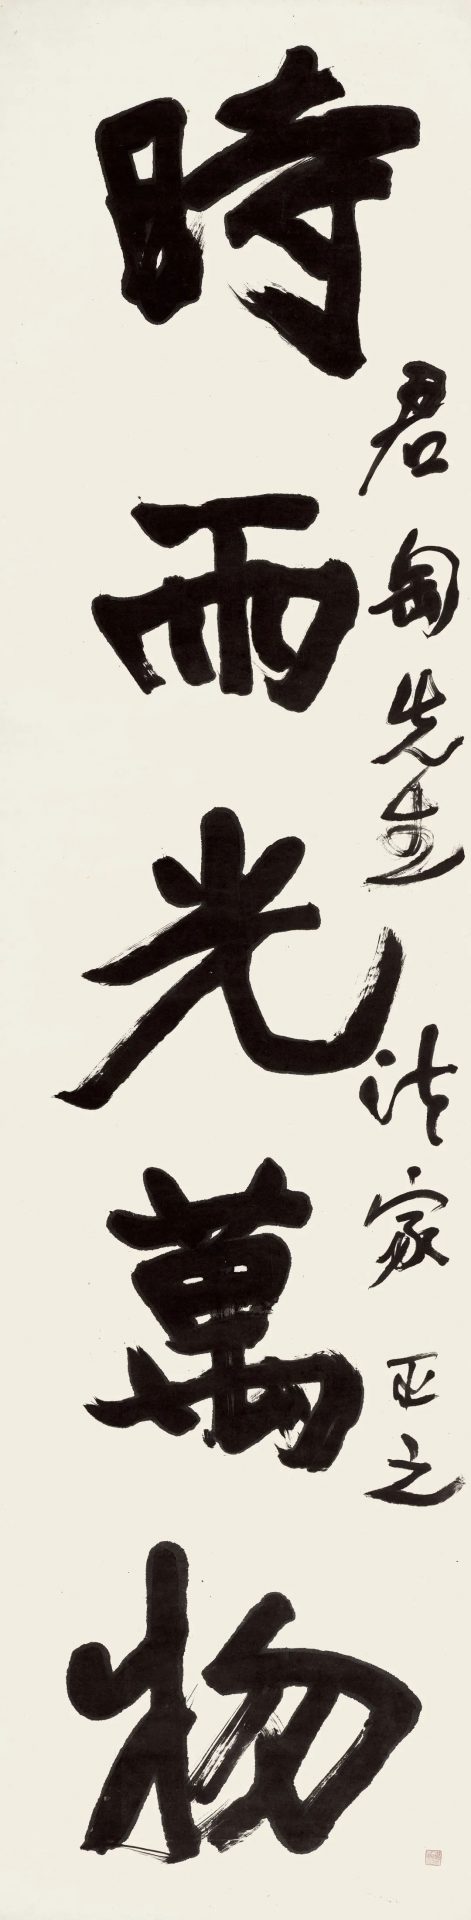 君匋先生法家正之
時雨光萬物